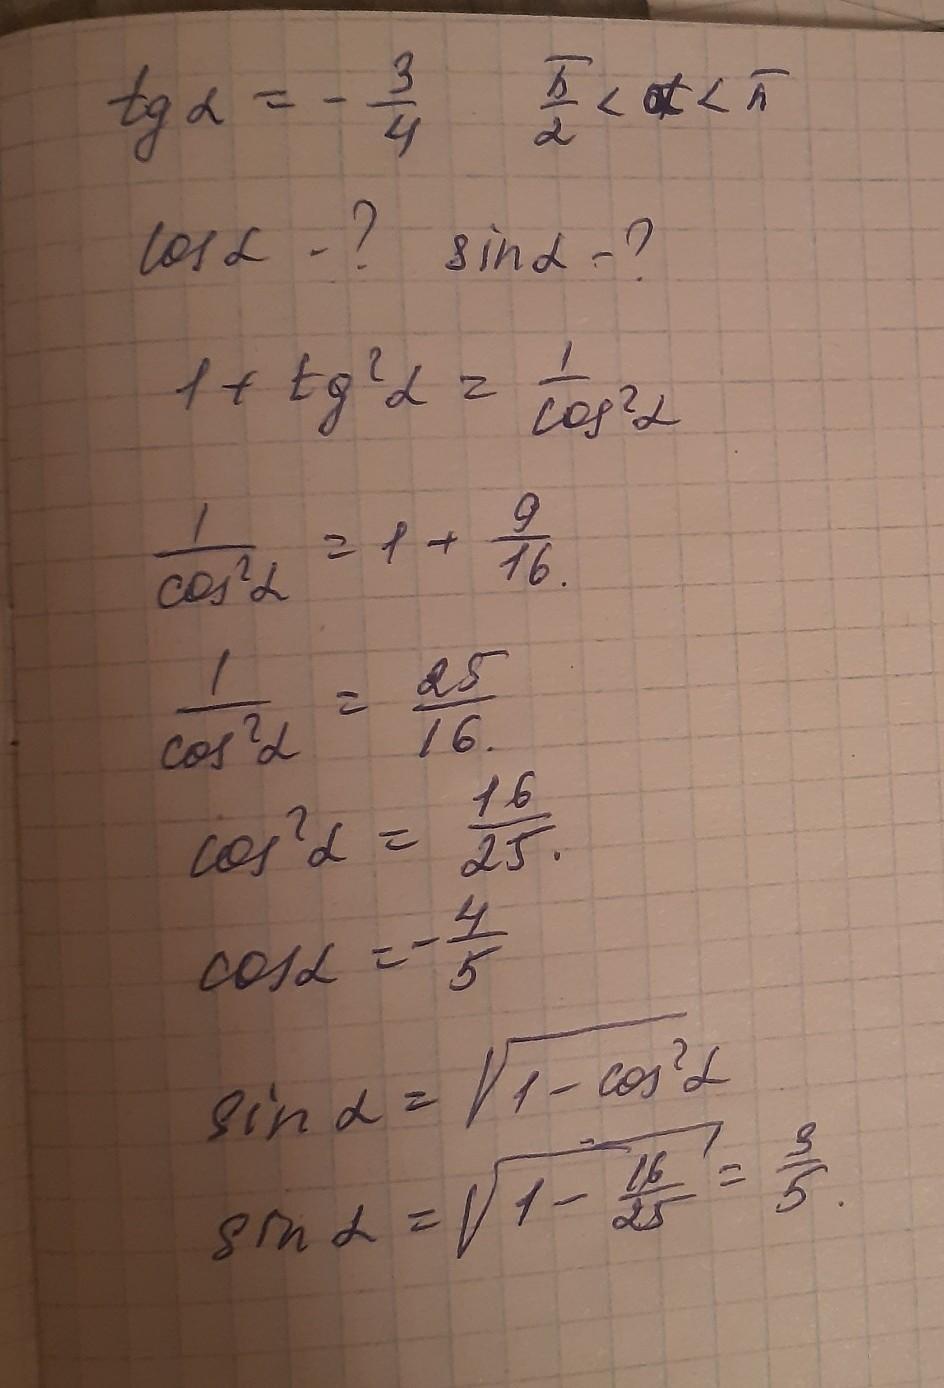 tg α = - 3/4    π/2 < α < π
cos α - ?   sin α - ?
1 + tg²α = 1/cos²α
1/cos²α = 1 + 9/16.
1/cos²α = 25/16.
cos²α = 16/25.
cos α = - 4/5
sin α = √(1 - cos²α)
sin α = √(1 - 16/25) = 3/5.